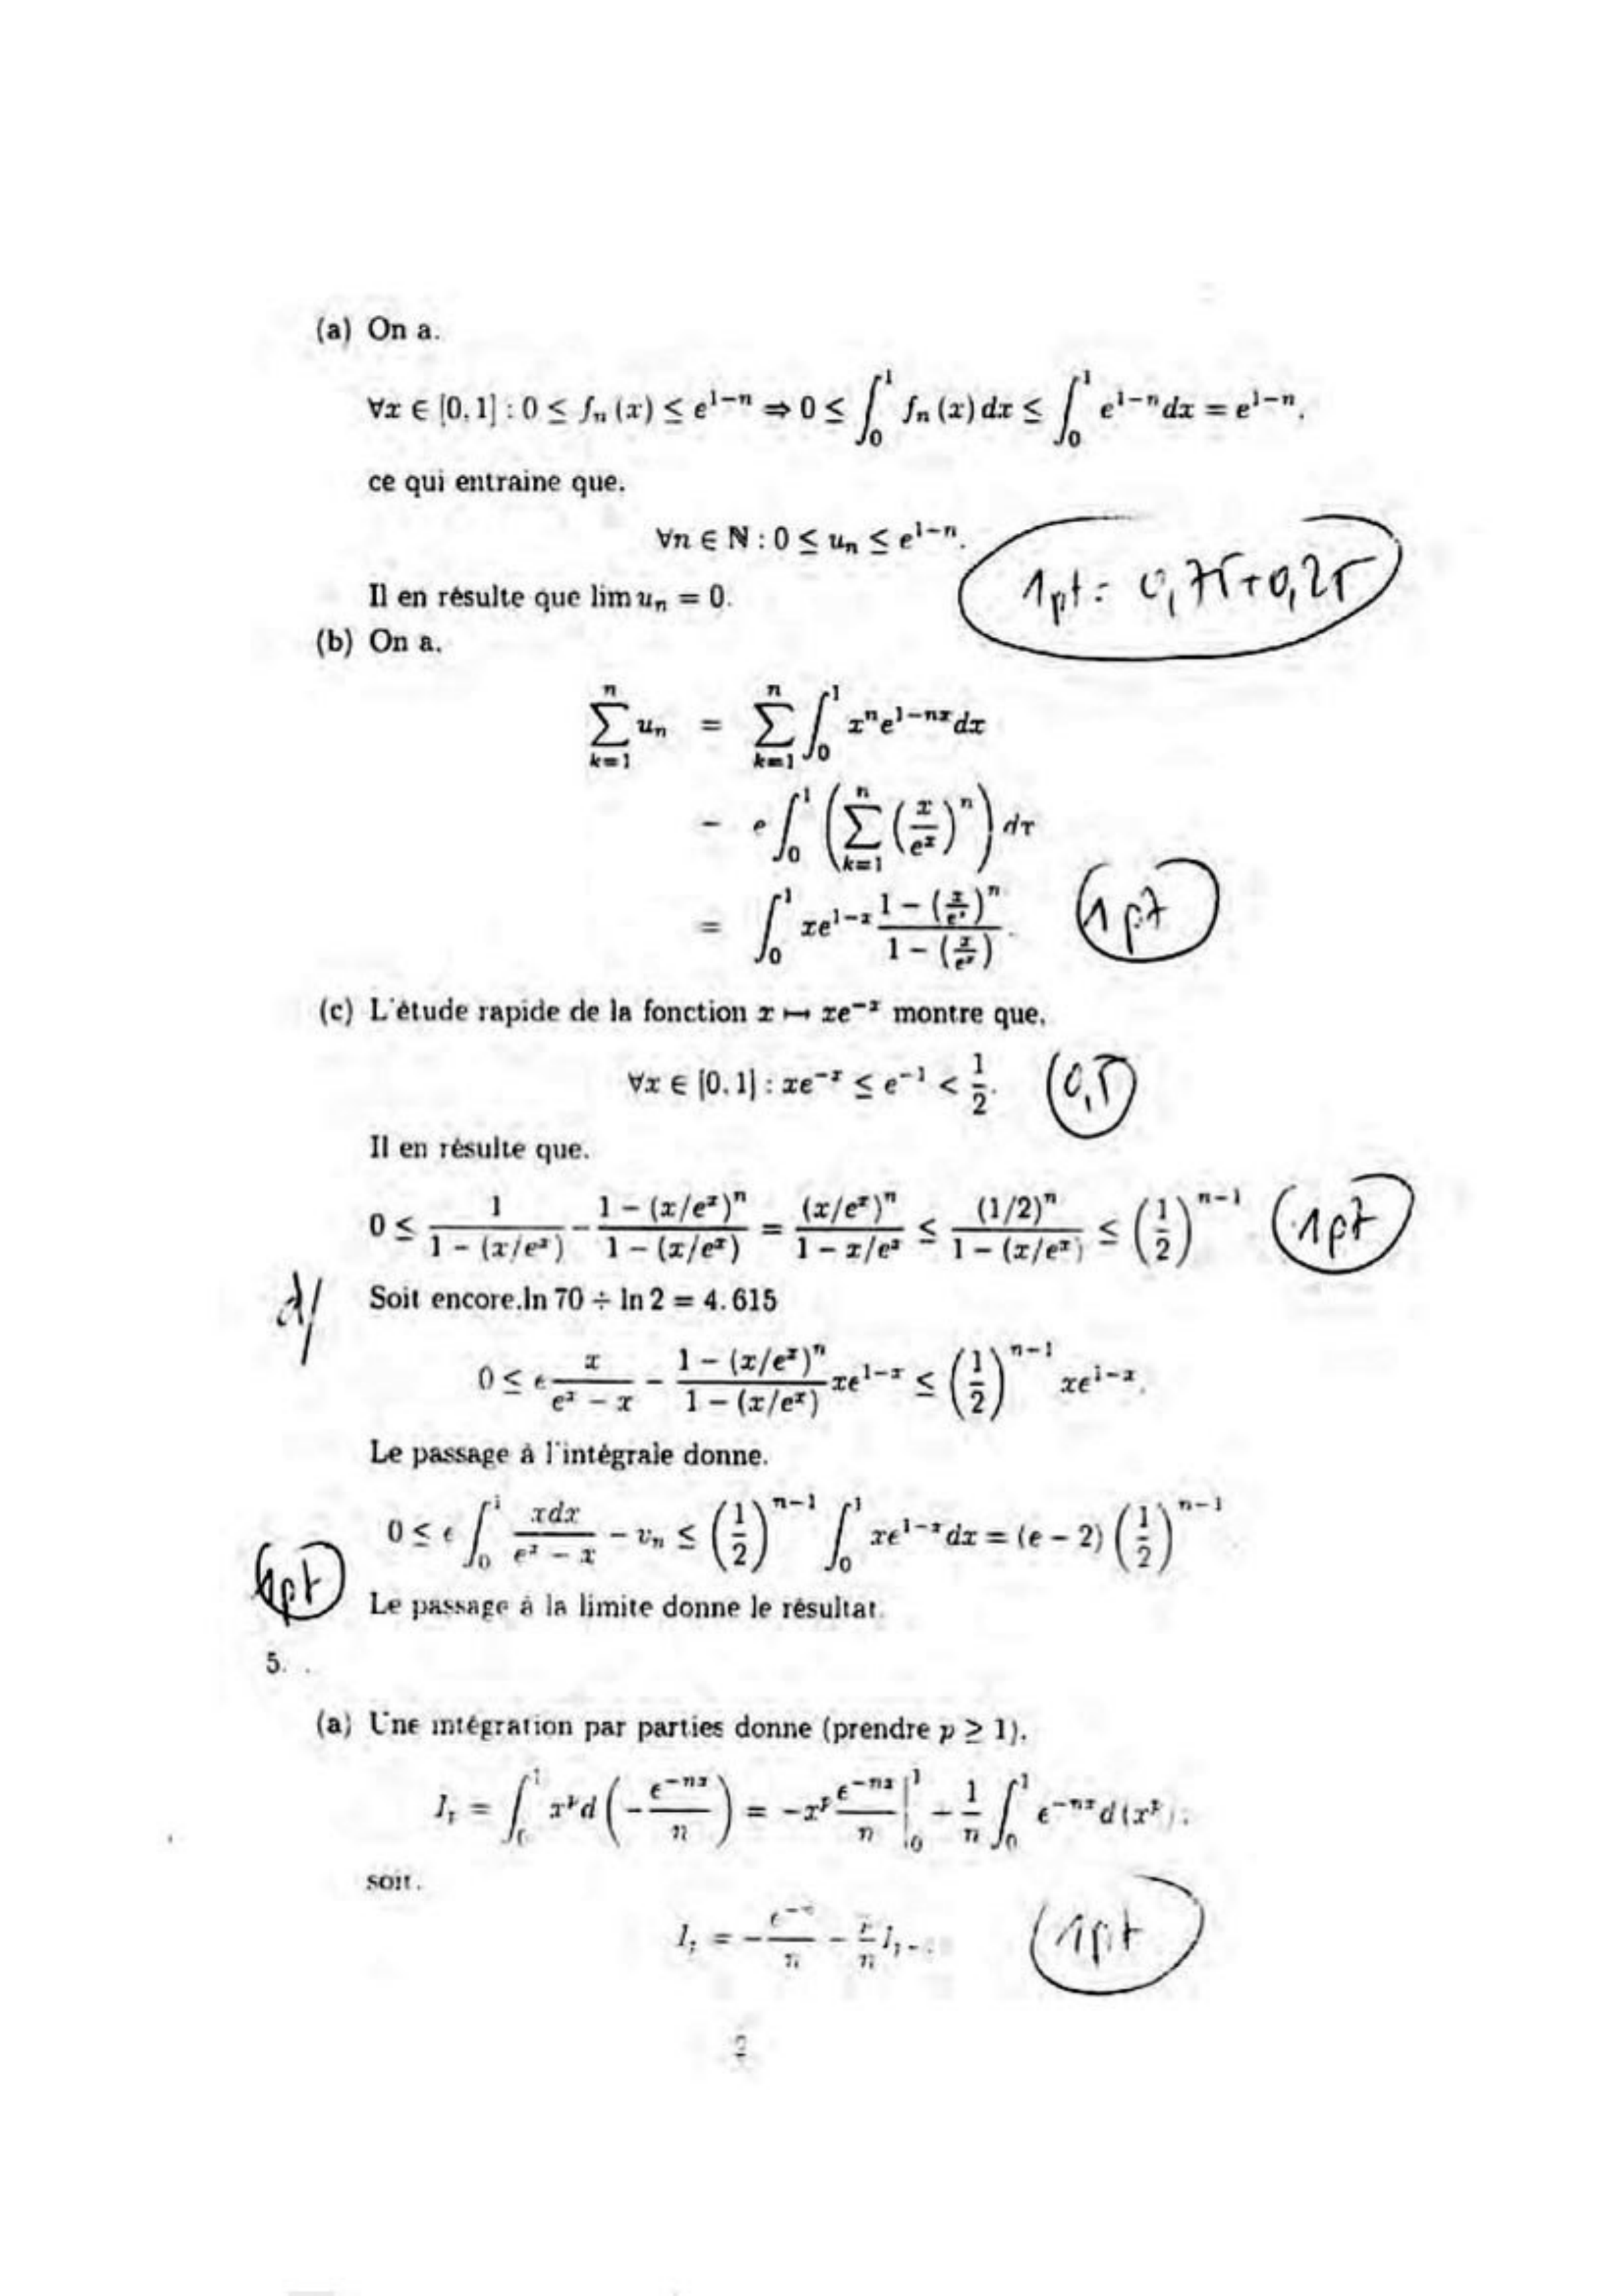 (a) On a.
∀x ∈ [0.1] : 0 ≤ fₙ (x) ≤ e^{1−n} ⇒ 0 ≤ ∫₀¹ fₙ (x) dx ≤ ∫₀¹ e^{1−n} dx = e^{1−n}.
ce qui entraine que.
∀n ∈ ℕ : 0 ≤ uₙ ≤ e^{1−n}.
1pt = 0,75+0,25
Il en résulte que lim uₙ = 0.
(b) On a.
∑_{k=1}^{n} uₙ = ∑_{k=1}^{n} ∫₀¹ xⁿe^{1−nx}dx
− e ∫₀¹ (∑_{k=1}^{n} (x/eˣ)ⁿ) dx
= ∫₀¹ xe^{1−x} (1 − (x/eˣ)ⁿ)/(1 − (x/eˣ)).
1pt
(c) L'étude rapide de la fonction x ↦ xe^{−x} montre que.
∀x ∈ [0.1] : xe^{−x} ≤ e^{−1} < 1/2.
0,5
Il en résulte que.
0 ≤ 1/(1 − (x/eˣ)) − (1 − (x/eˣ)ⁿ)/(1 − (x/eˣ)) = (x/eˣ)ⁿ/(1 − x/eˣ) ≤ (1/2)ⁿ/(1 − (x/eˣ)) ≤ (1/2)^{n−1}
1pt
d/ Soit encore.ln 70 ÷ ln 2 = 4.615
0 ≤ e x/(eˣ − x) − (1 − (x/eˣ)ⁿ)/(1 − (x/eˣ)) xe^{1−x} ≤ (1/2)^{n−1} xe^{1−x}.
Le passage à l'intégrale donne.
0 ≤ e ∫₀¹ xdx/(eˣ − x) − vₙ ≤ (1/2)^{n−1} ∫₀¹ xe^{1−x}dx = (e − 2) (1/2)^{n−1}
1pt
Le passage à la limite donne le résultat.
5. .
(a) Une intégration par parties donne (prendre p ≥ 1).
Iₚ = ∫₀¹ xᵖd (−e^{−nx}/n) = −xᵖ e^{−nx}/n |₀¹ − 1/n ∫₀¹ e^{−nx}d (xᵖ).
soit.
= − −
1pt
2